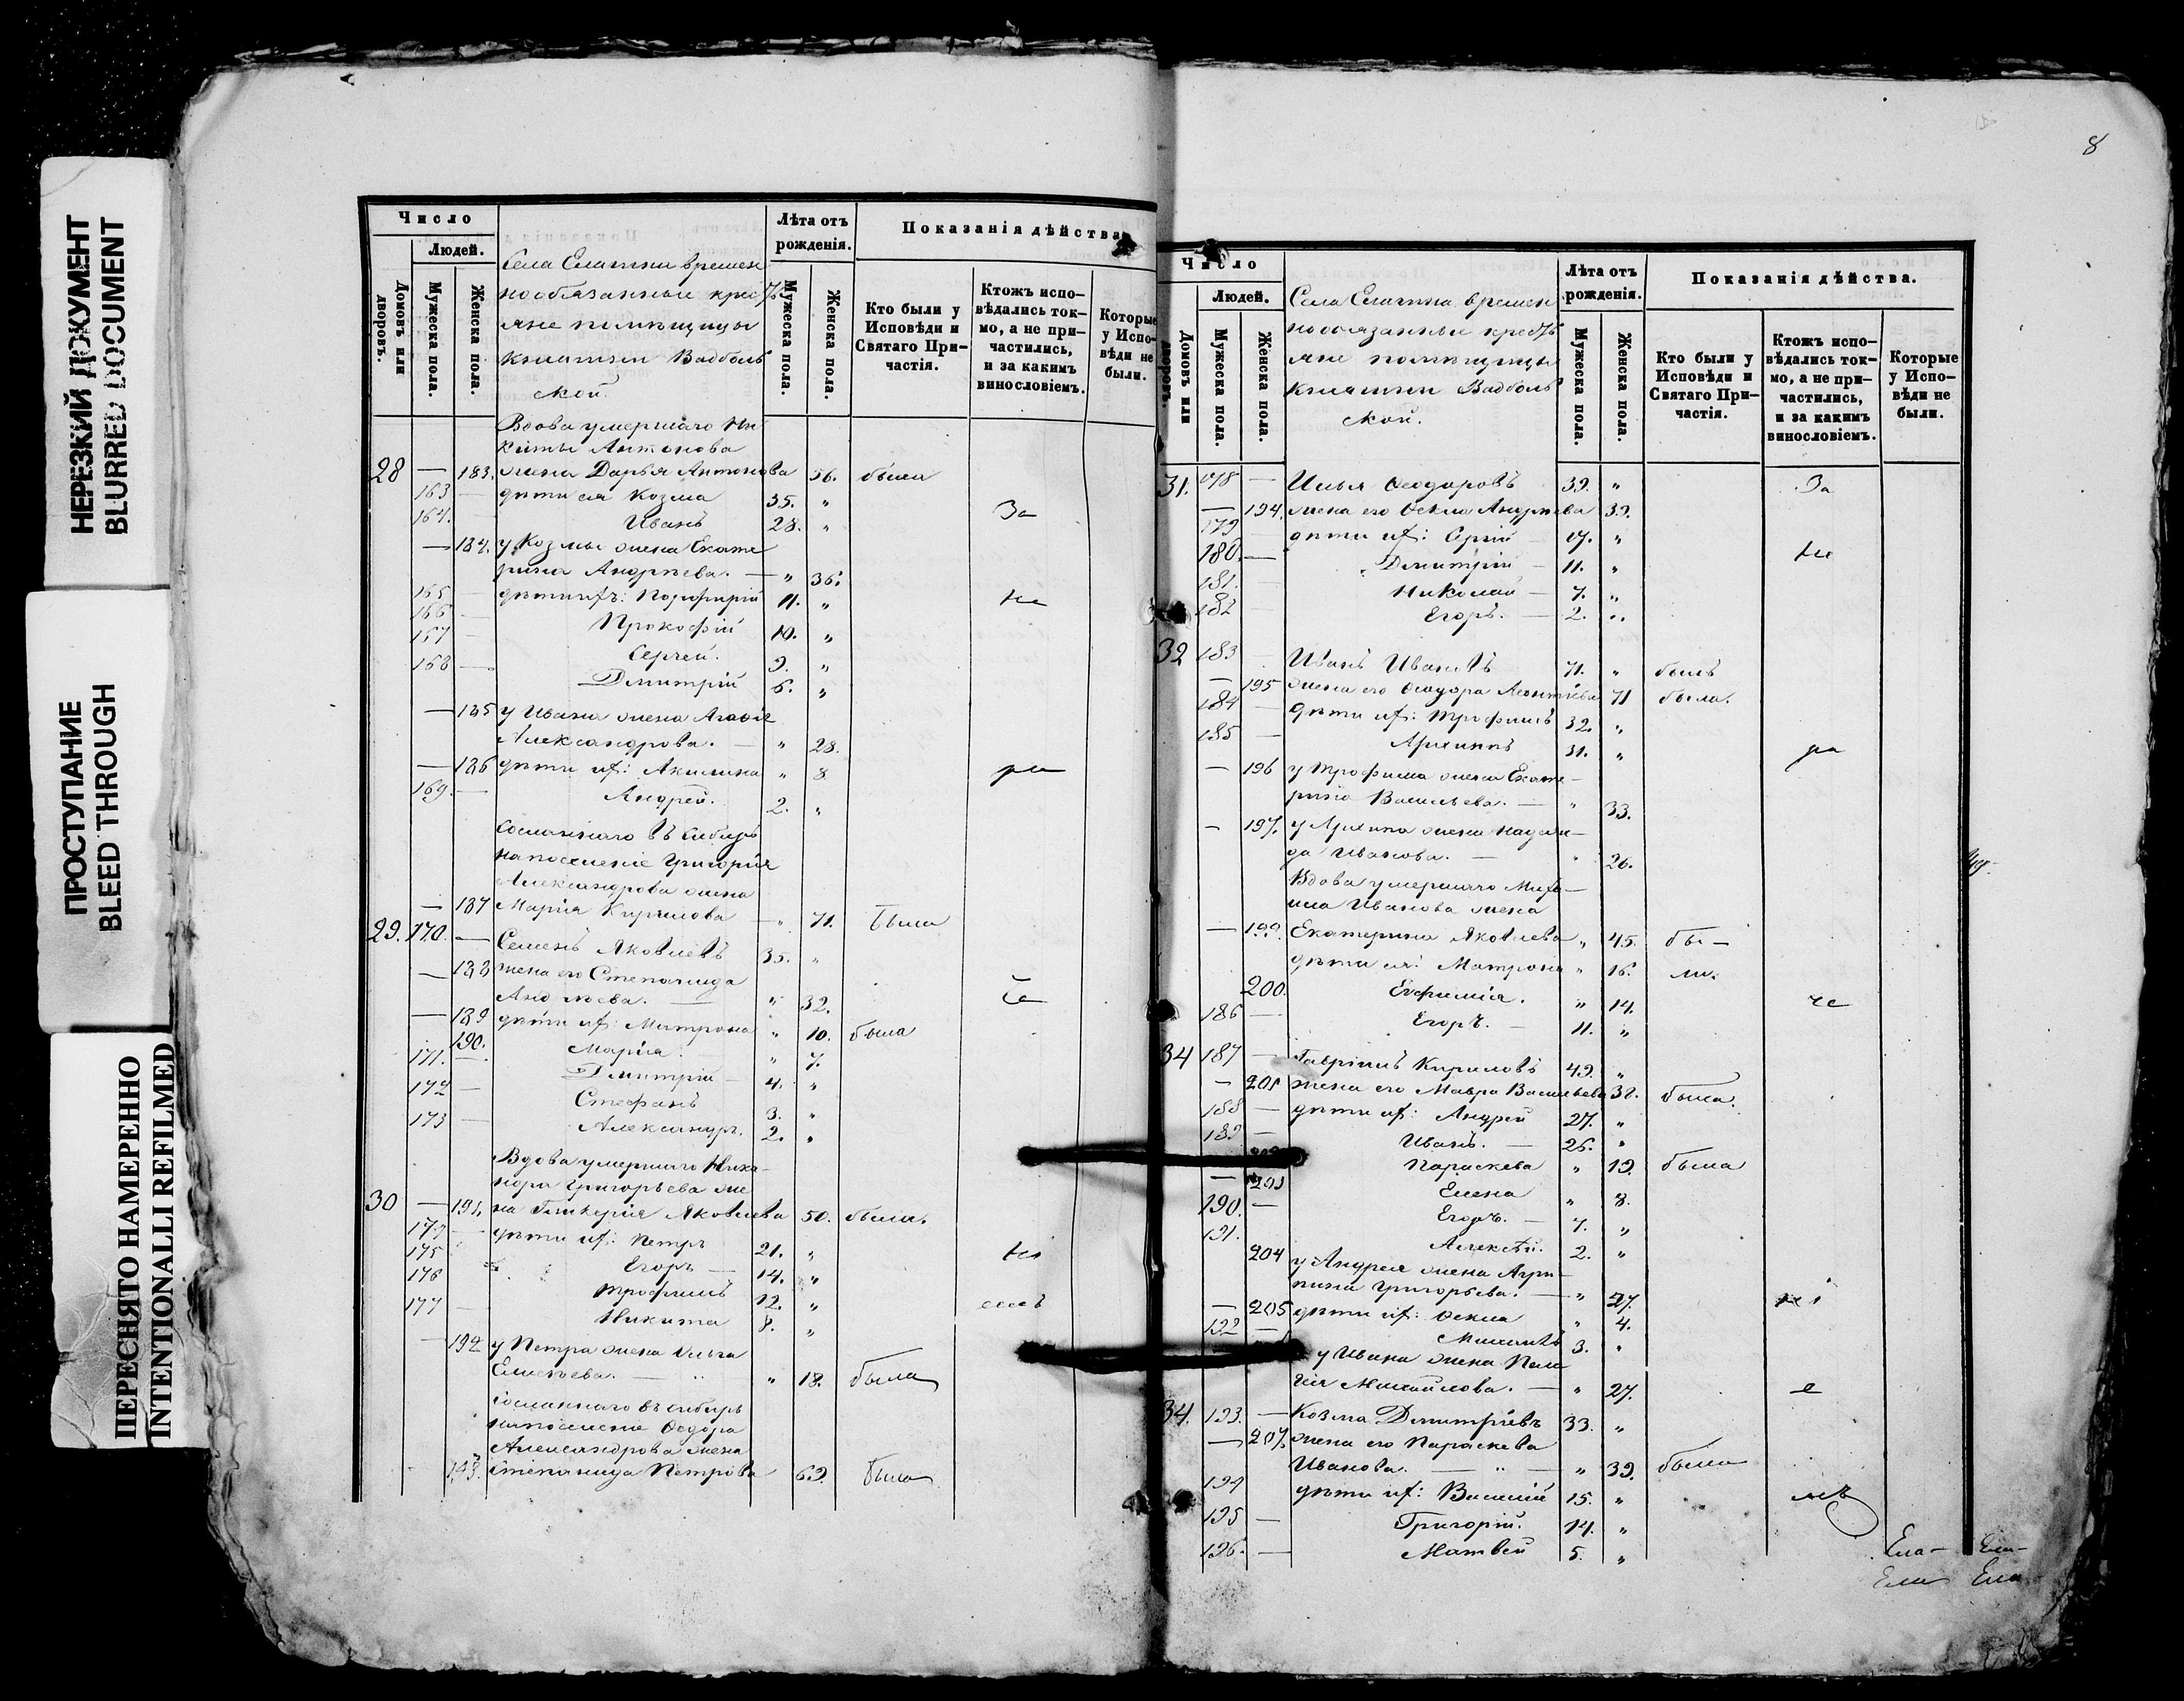 НЕРЕЗКИЙ ДОКУМЕНТ
BLURRED DOCUMENT
ПРОСТУПАНИЕ
BLEED THROUGH
ПЕРЕСНЯТО НАМЕРЕННО
INTENTIONALLI REFILMED
Число
Людей.
Домовъ или дворовъ.
Мужеска пола.
Женска пола.
Села Елатни времен
нообязанные крестЬ
яне помѣщицы
княгини Вадболь
ской.
Лѣта отъ рожденія.
Мужеска пола.
Женска пола.
Показанія дѣйства
Кто были у Исповѣди и Святаго Причастія.
Ктожъ исповѣдались токмо, а не причастились, и за какимъ винословіемъ.
Которые у Исповѣди не были.
Вдова умершаго Ни
киты Антонова
28 — 183. жена Дарья Антонова 56. была
163 — дѣти ея Козма 35. "
164. Иванъ 28. " За
— 184. у Козмы жена Екате
рина Андреева. — " 36.
165 — дѣти ихъ: Порфирій 11. " не
166 — Прокофій 10. "
167 — Сергей. 9. "
168 — Димитрій 6. "
— 185 у Ивана жена Агафія
Александрова. — " 28.
— 186 дѣти их: Акилина " 8 ра
169. — Андрей. 2. "
Сосланнаго въ Сибирь
на поселеніе Григорія
Александрова жена
— 187 Марія Кирилова — " 71. Была
29. 170. — Семенъ Яковлевъ 35. "
— 188 жена его Степанида
— " 32.
— 189 дѣти их: Матрона " 10. была
190. Марія. " 7.
171. — Димитрій — 4. "
172 — Стефанъ 3. "
173 — Александръ. 2. "
Вдова умершаго Ника-
нора Григорьева же
30 — 191. на Гликерія Яковлева 50. была.
174 — дѣти их: Петръ 21. "
175 Егоръ — 14. "
176 Трофимъ 12. "
177 — Никита 8. "
— 192 у Петра жена Ольга
Елисеева. — " 18. была
Сосланнаго въ Сибирь
на поселеніе Федора
Александрова жена
193. Степанида Петрова 69. Была
8
Число
Людей.
Домовъ или дворовъ.
Мужеска пола.
Женска пола.
Села Елатни времен
нообязанные крестЬ
яне помѣщицы
княгини Вадболь
ской.
Лѣта отъ рожденія.
Мужеска пола.
Женска пола.
Показанія дѣйства.
Кто были у Исповѣди и Святаго Причастія.
Ктожъ исповѣдались токмо, а не причастились, и за какимъ винословіемъ.
Которые у Исповѣди не были.
31. 178 — Илья Феодоровъ 39. " За
— 194. жена его Фекла Андреева 39.
179 дѣти их: Сергій 17. "
180. — Димитрій — 11. " не
181. Николай — 7. "
182 Егоръ. — 2. "
32 183 Иванъ Ивановъ 71. " былъ
— 195 жена его Феодора Леонтіева 71 была.
184 — дѣти их: Трофимъ 32. "
185 — Архиппъ 31. " ра
— 196 у Трофима жена Екате-
рина Васильева. — " 33.
— 197. у Архипа жена Надеж-
да Иванова. — " 26.
Вдова умершаго Миха-
ила Иванова жена
— 199. Екатерина Яковлева " 45. бы-
дѣти ея: Матрона " 16. ли.
200. Евфимія. " 14.
186 — Егоръ. — 11. "
34 187 — Гавріилъ Кириловъ 49. "
— 201 жена его Мавра Васильева 38. была.
188 — дѣти их: Андрей 27. "
189 — Иванъ. — 26. "
Параскева " 19. была
— 203 Елена " 8.
190. — Егоръ. — 7. "
191. Алексѣй. 2. "
204 у Андрея жена Агри-
пина Григорьева. — " 27.
— 205 дѣти их: Фекла " 4.
192 — Михаилъ 3. "
у Ивана жена Пела
гія Михайлова. — " 27.
34. 193. — Козма Димитріевъ 33. "
— 207. жена его Параскева
Иванова. — " — " 39. была
194 дѣти их: Василій 15. "
195 — Григорій. 14. "
196. — Матвей 5. "
Ела- Ела-
Ела Ела